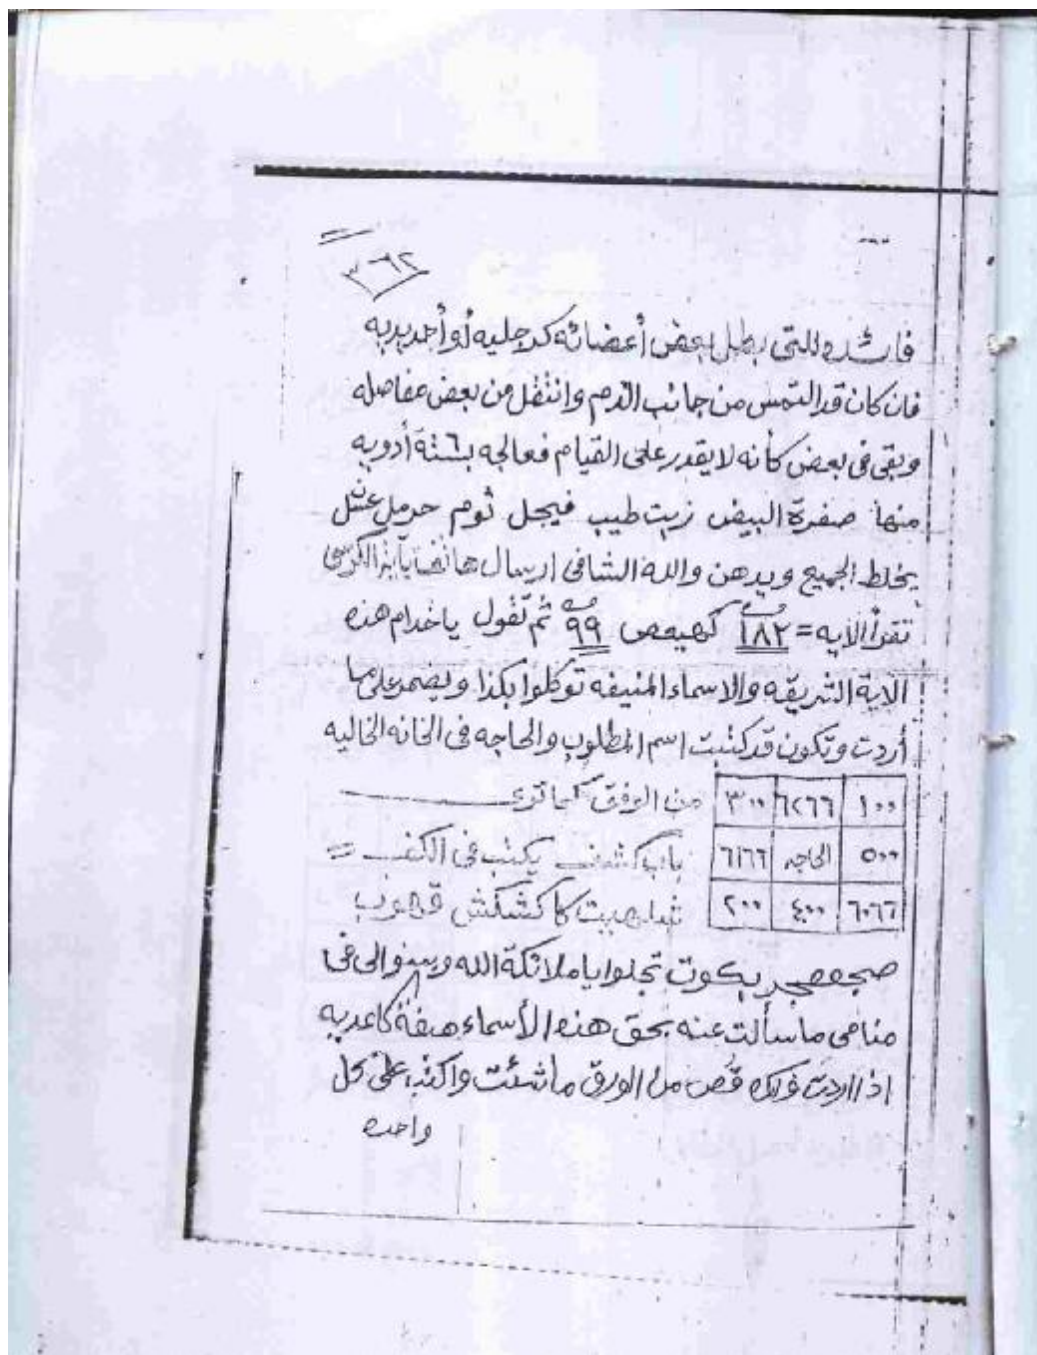 ٣٦٢
فائده للتى بطل بعض أعضائه كرجليه أو أحد يديه
فان كان قد التمس من جانب الدم وانتقل من بعض مفاصله
وبقى فى بعض كأنه لا يقدر على القيام فعالجه بستة أدويه
منها صفرة البيض زيت طيب فيجل ثوم حرمل عسل
يخلط الجميع ويدهن والله الشافى ارسال هاتف بآية الكرسى
تقرأ الايه = ١٨٢ كهيعص ٩٩ ثم تقول ياخدام هذه
الاية الشريفه والاسماء المنيفه توكلوا بكذا ويضمر على ما
أردت وتكون قد كتبت اسم المطلوب والحاجه فى الخانه الخاليه
من الوفق كما ترى
١٠٠ ٦٢٦٦ ٣٠٠
٥٠٠ الحاجه ٦١٦٦
٦٠٦٦ ٤٠٠ ٢٠٠
باب كشف يكتب فى الكف =
كاكشكش
تجلوا ياملائكة الله وبينوا لى فى
منامى ما سألت عنه بحق هذه الأسماء صفة كاغديه
اذا اردت ذلك قص من الورق ما شئت واكتب على كل
واحده